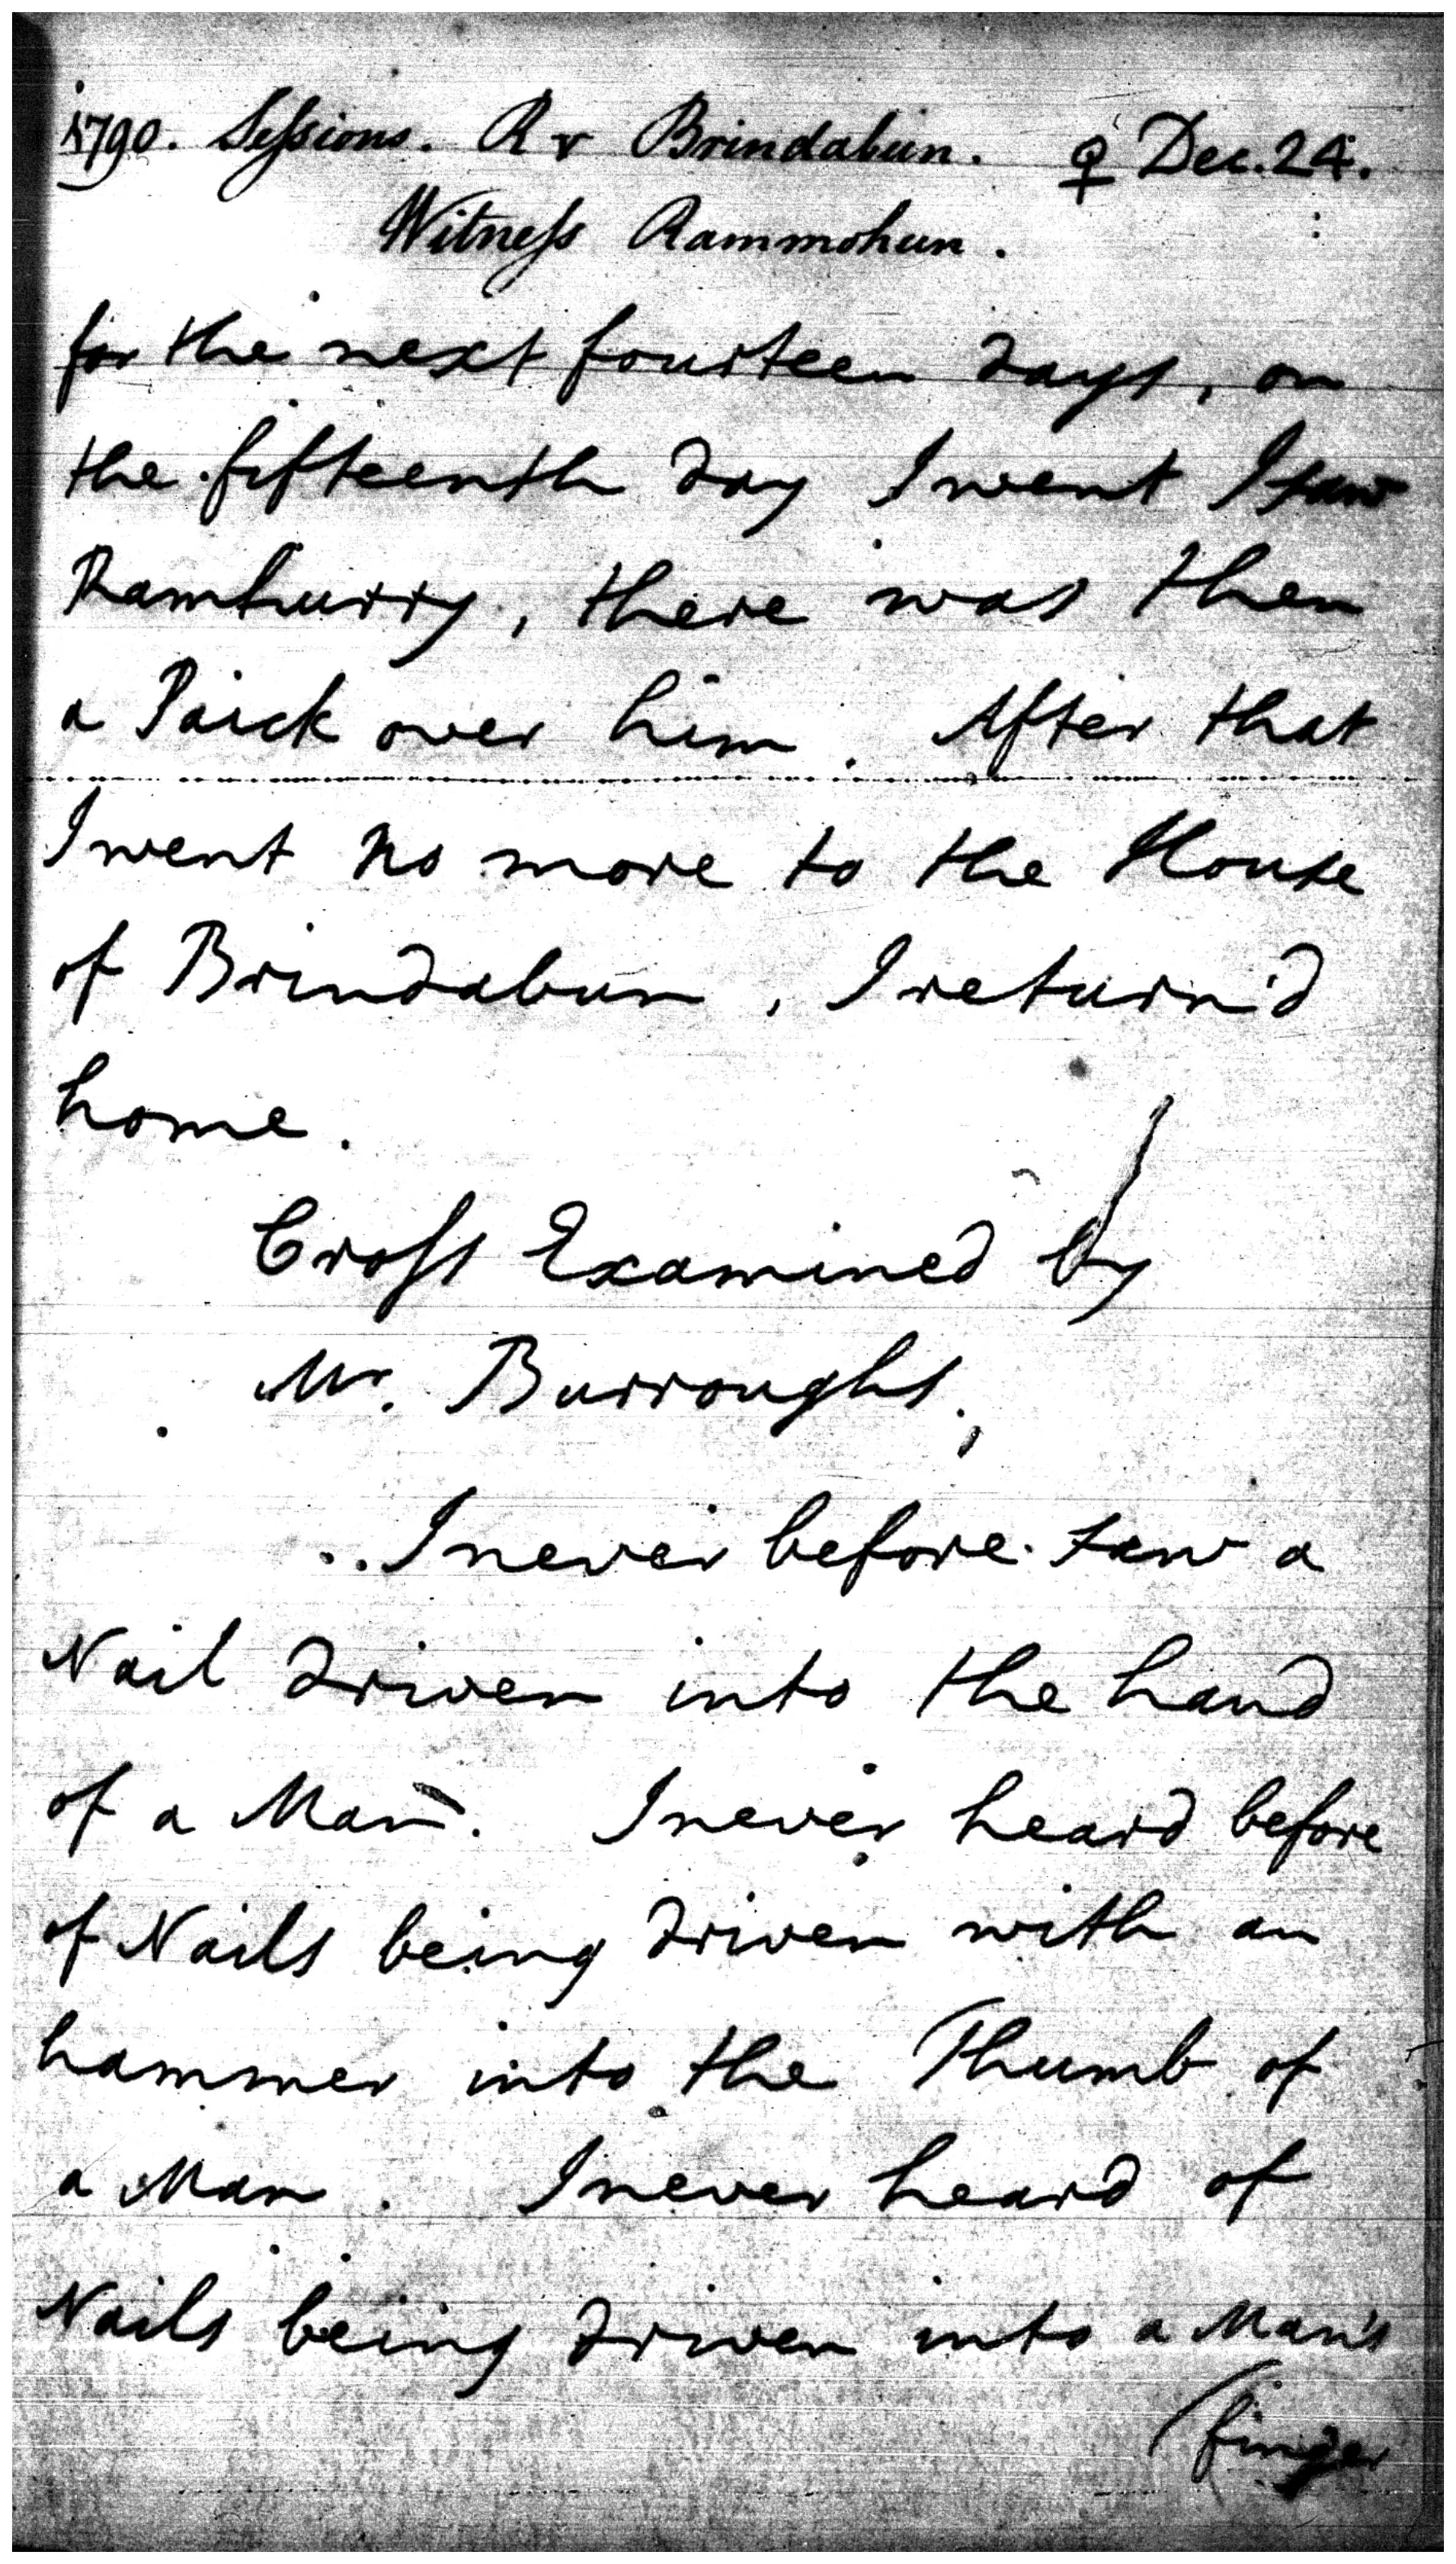 1790. Sessions. R v Brindabun. ♀ Dec. 24.
Witness Rammohun.
for the next fourteen days, on
the fifteenth day I went I saw
Ramhurry, there was then
a Paick over him. After that
I went no more to the House
of Brindabun, I return'd
home.
Cross Examined by
Mr. Burroughs.
I never before saw a
Nail driven into the hand
of a Man. I never heard before
of Nails being driven with an
hammer into the Thumb of
a Man. I never heard of
Nails being driven into a Man's
(finger